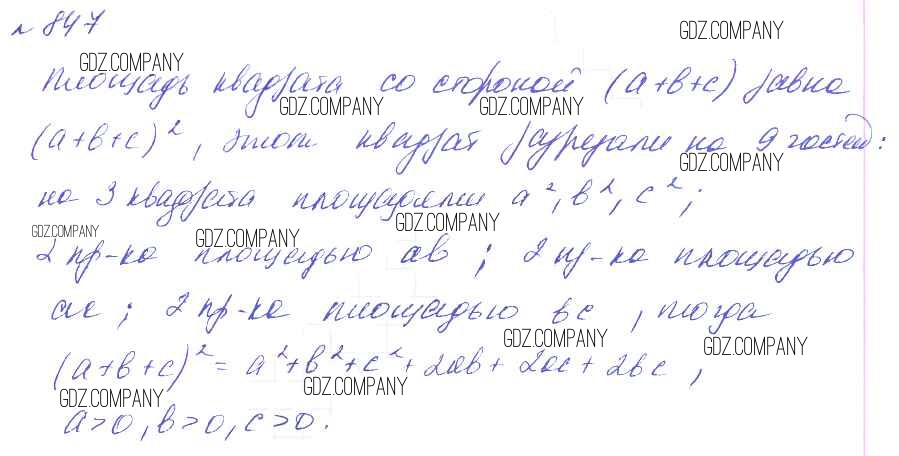 № 847
Площадь квадрата со стороной (a+b+c) равна
(a+b+c)², этот квадрат разрезали на 9 частей:
на 3 квадрата площадями a², b², c²;
2 пр-ка площадью ab; 2 пр-ка площадью
ac; 2 пр-ка площадью bc, тогда
(a+b+c)² = a²+b²+c²+2ab+2ac+2bc,
a>0, b>0, c>0.
GDZ.COMPANY
GDZ.COMPANY
GDZ.COMPANY
GDZ.COMPANY
GDZ.COMPANY
GDZ.COMPANY
GDZ.COMPANY
GDZ.COMPANY
GDZ.COMPANY
GDZ.COMPANY
GDZ.COMPANY
GDZ.COMPANY